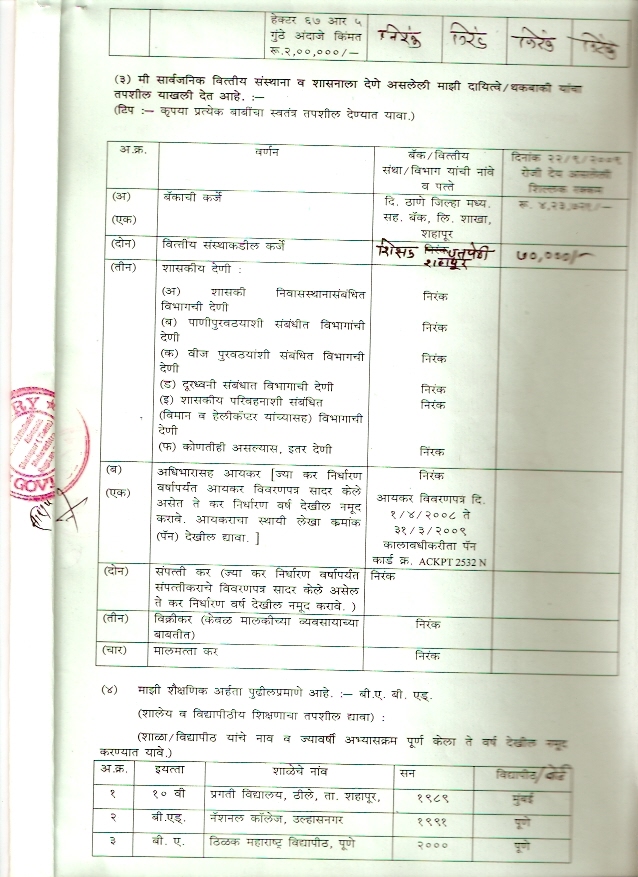 हेक्टर ६७ आर ५
गुंठे अंदाजे किंमत
रू.२,००,०००/—
निरंक निरंक निरंक निरंक
(३) मी सार्वजनिक वित्तीय संस्थाना व शासनाला देणे असलेली माझी दायित्वे/थकबाकी यांचा
तपशील याखली देत आहे. :—
(टिप :— कृपया प्रत्येक बाबींचा स्वतंत्र तपशील देण्यात यावा.)
अ.क्र. वर्णन बॅक/वित्तीय संथा/विभाग यांची नांवे व पत्ते दिनांक २२/९/२००९ रोजी देय असलेली शिल्लक रक्कम
(अ) बॅकाची कर्जे
(एक) दि. ठाणे जिल्हा मध्य. सह. बॅक, लि. शाखा, शहापूर
(दोन) वित्तीय संस्थाकडील कर्जे निरंक शहापूर ७०,०००/—
(तीन) शासकीय देणी :
(अ) शासकी निवासस्थानासंबंधित
विभागाची देणी निरंक
(ब) पाणीपुरवठयाशी संबंधीत विभागांची
देणी निरंक
(क) वीज पुरवठयांशी संबंधित विभागची
देणी निरंक
(ड) दूरध्वनी संबंधात विभागाची देणी निरंक
(इ) शासकीय परिवहनाशी संबंधित निरंक
(विमान व हेलीकॅप्टर यांच्यासह) विभागाची
देणी
(फ) कोणतीही असल्यास, इतर देणी निरंक
(ब) अधिभारासह आयकर [ज्या कर निर्धारण निरंक
(एक) वर्षापर्यंत आयकर विवरणपत्र सादर केले
असेत ते कर निर्धारण वर्ष देखील नमूद
करावे. आयकराचा स्थायी लेखा कमांक
(पॅन) देखील द्यावा. ]
आयकर विवरणपत्र दि.
१/४/२००८ ते
३१/३/२००९
कालावधीकरीता पॅन
कार्ड क्र. ACKPT 2532 N
(दोन) संपत्ती कर (ज्या कर निर्धारण वर्षापर्यंत निरंक
संपत्तीकराचे विवरणपत्र सादर केले असेल
ते कर निर्धारण वर्ष देखील नमूद करावे. )
(तीन) विक्रीकर (केवळ मालकीच्या व्यवसायाच्या निरंक
बाबतीत)
(चार) मालमत्ता कर निरंक
(४) माझी शैक्षणिक अर्हता पुढीलप्रमाणे आहे. :— बी.ए. बी. एड्.
(शालेय व विद्यापीठीय शिक्षणाचा तपशील द्यावा) :
(शाळा/विद्यापीठ यांचे नाव व ज्यावर्षी अभ्यासक्रम पूर्ण केला ते वर्ष देखील नमूद
करण्यात यावे.)
अ.क्र. इयत्ता शाळेचे नांव सन विद्यापीठ/बोर्ड
१ १० वी प्रगती विद्यालय, ठीले, ता. शहापूर, १९८९ मुंबई
२ बी.एड्. नॅशनल कॉलेज, उल्हासनगर १९९१ पूणे
३ बी. ए. ठिळक महाराष्ट्र विद्यापीठ, पूणे २००० पूणे